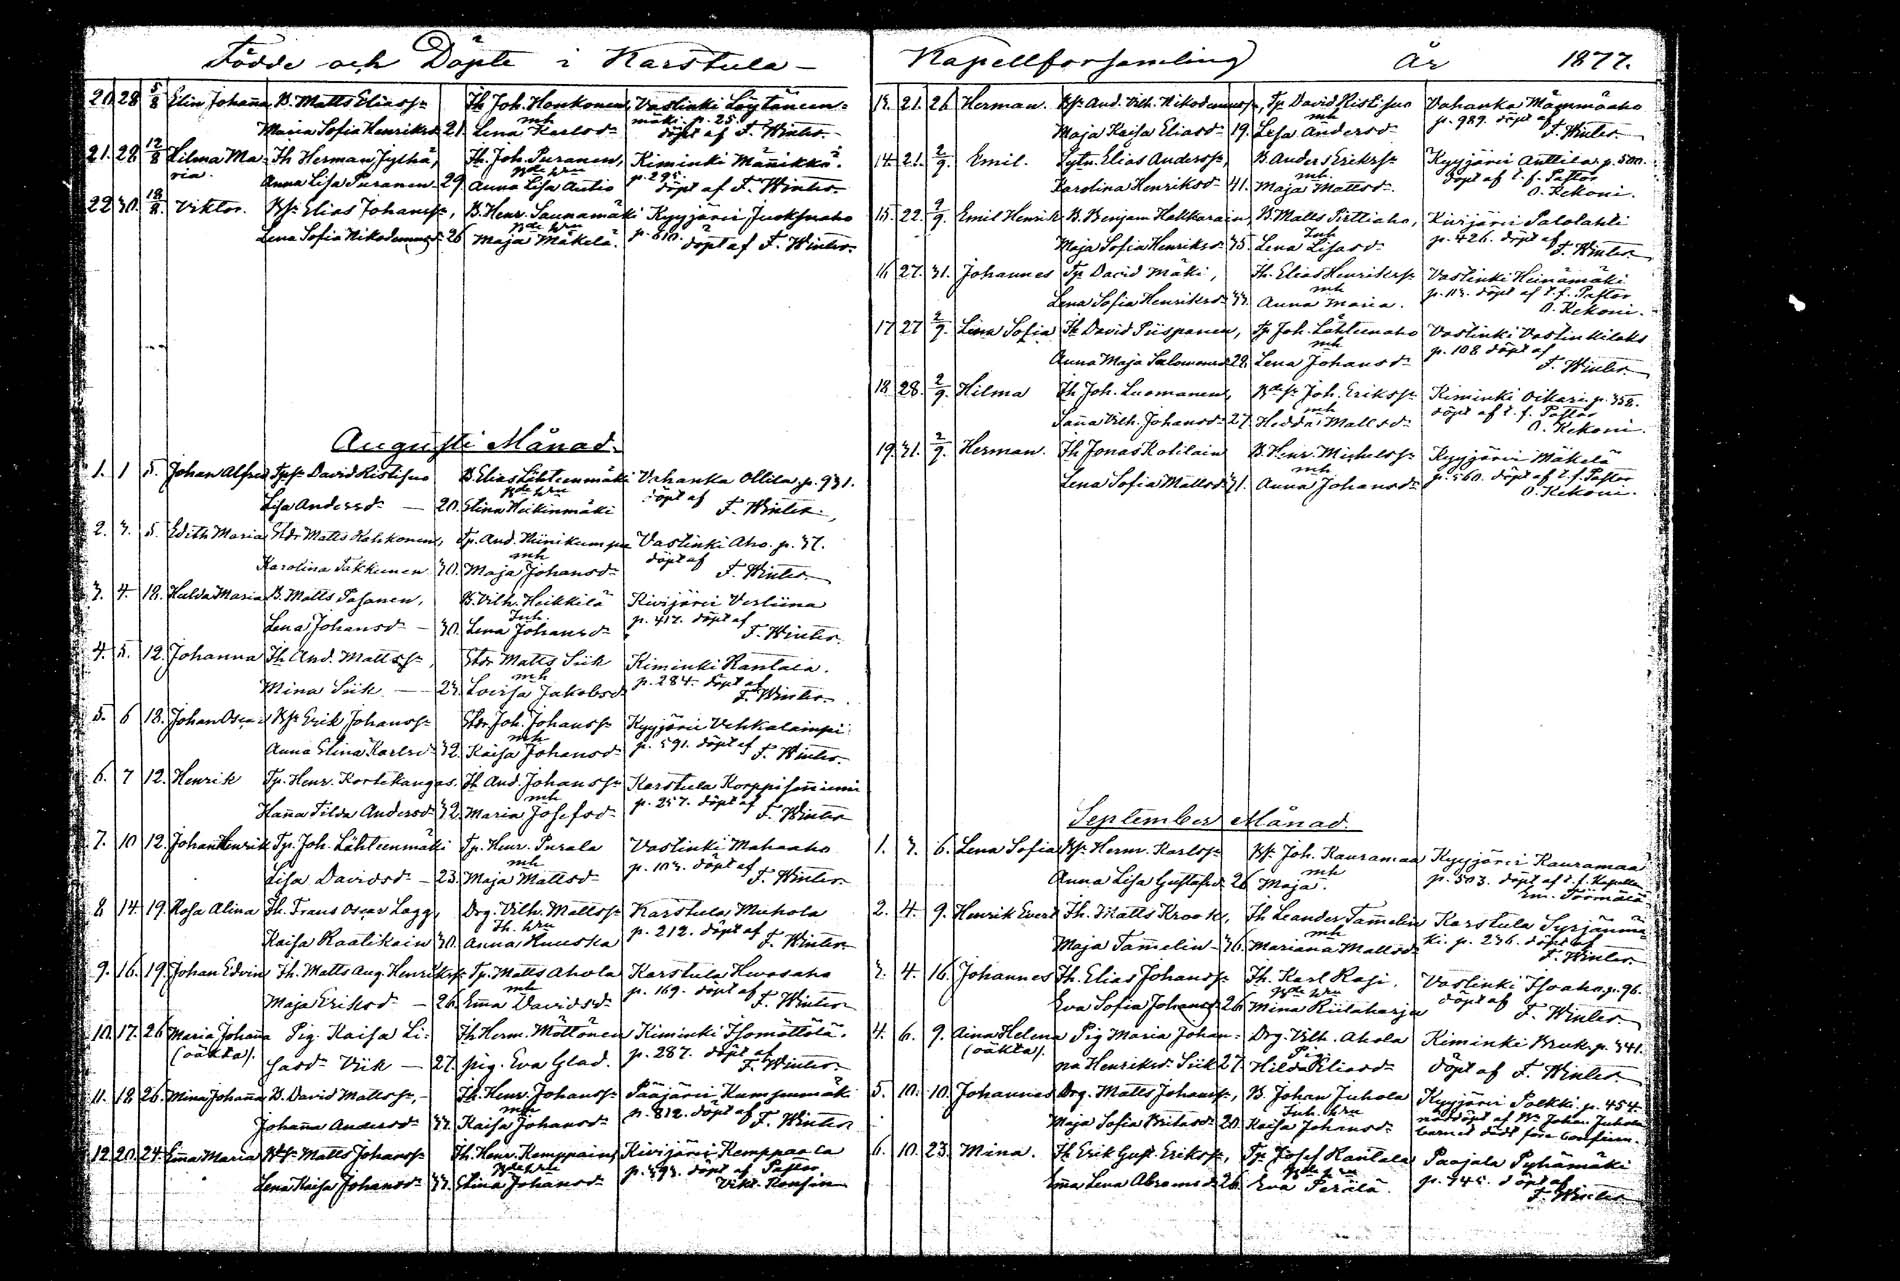 Födde och Döpte i Karstula
20. 28 5/8 Elin Johaña B. Matts Eliass: Th Joh. Honkonen, Vastinki Löytänen=
mh mäki p. 25.
Maria Sofia Henriksd: 21. Lena Karlsd: döpt af F. Winter.
21. 28 12/8 Hilma Ma= Th Herman Jylhä, Th. Joh. Puranen, Kiminki Mänikkä.
ria. Anna Lisa Puranen 29. Anna Lisa Autio p. 295. döpt af F. Winter.
22 30. 18/8 Viktor. Bs: Elias Johanss:, B. Henr. Saunamäki Kyyjärvi Juoksuaho
Lena Sofia Nikodemusd: 26 Maja Mäkelä. p. 610. döpt af F. Winter.
Augusti Månad.
1. 1 5. Johan Alfred Tps: David Ristisuo B. Elias Lähteenmäki Vahanka Ollila p. 931.
Lisa Andersd: — 20. Stina Heikinmäki döpt af F. Winter.
2. 3. 5. Edith Maria Sldr Matts Kahkonen, Tp. And. Hiinikumpu Vastinki Aho. p. 37.
mh döpt af
Karolina Takkinen 30. Maja Johansd: F. Winter.
3. 4. 18. Hulda Maria B. Matts Pasanen, B. Vilh. Heikkilä Kivijärvi Vesliina
Inh. p. 417. döpt af
Lena Johansd: — 30. Lena Johansd: F. Winter.
4. 5. 12. Johanna Th And. Mattss:, Sldr Matts Siik Kiminki Rantala.
mh p. 284. döpt af
Mina Siik. — 23. Lovisa Jakobsd: F. Winter.
5. 6 18. Johan Oscar Bs: Erik Johanss: Sldr. Joh. Johanss: Kyyjärvi Vehkalampi
mh p. 591. döpt af
Anna Stina Karlsd: 32 Kaisa Johansd: F. Winter.
6. 7 12. Henrik Tp. Henr. Kortekangas. Th And. Johanss: Karstula Korppisiniemi
mh p. 257. döpt af
Haña Tilda Andersd: 32. Maria Josefsd: F. Winter
7. 10 12. Johan Henrik Tp. Joh. Lähteenmäki Tp. Henr. Purala Vastinki Mahaaho
mh p. 103. döpt af
Lisa Davidsd: — 23. Maja Mattsd: F. Winter.
8 14. 19. Rosa Alina Th. Frans Oscar Lagg, Drg. Vilh. Mattss: Karstula Muhola
Th. hru p. 212. döpt af
Kaisa Raatikain 30. Anna Huuska F. Winter.
9. 16. 19. Johan Edvin Th. Matts Aug. Henrikss: Tp. Matts Ahola Karstula Huosaho
mh p. 169. döpt af
Maja Eriksd: — 26. Ema Davidsd: F. Winter
10. 17. 26 Maria Johaña Pig. Kaisa Li= Th Herm. Möttönen Kiminki Isomöttölä.
(oäkta). p. 287. döpt af
sasd: Viik — 27. pig. Eva Glad. F. Winter
11. 18 26. Mina Johaña B. David Mattss:, Th. Henr. Johanss: Pääjärvi Kumpumäki
mh p. 812. döpt af
Johaña Andersd: 33. Kaisa Johansd: F. Winter
12. 20. 24. Ema Maria Bs: Matts Johanss: Th. Henr. Kemppain Kivijärvi Kemppaala
p. 393. döpt af Pastor
Lena Kaisa Johansd: 33. Stina Johansd: Vikt.
Kapellforsamling År 1877.
13. 21. 26 Herman. Bs: And. Vilh. Nikodemuss:, Tp. David Ristisuo Vahanka Mämmöaho
mh p. 989. döpt af
Maja Kaisa Eliasd: 19. Lisa Andersd: F. Winter
14. 21. 2/9. Emil. Sytn. Elias Anderss: B. Anders Erikss: Kyyjärvi Anttila p. 500.
mh döpt af t. f. Pastor
Karolina Henriksd: 41. Maja Mattsd: O. Kekoni.
15. 22. 9/9. Emil Henrik B. Benjam Hakkarain, B. Matts Pirttiaho, Kivijärvi Palolahti
Inh p. 426. döpt af
Maja Sofia Henriksd: 35. Lena Lisasd: F. Winter
16 27. 31. Johannes Tp. David Mäki, Th. Elias Henrikss: Vastinki Heinämäki
mh p. 113. döpt af t. f. Pastor
Lena Sofia Henriksd: 33. Anna Maria. O. Kekoni.
17 27 2/9. Lina Sofia Th David Piispanen, Tp. Joh. Lähteenaho Vastinki Vastinkilaks
mh p. 108 döpt af
Anna Maja Salomonsd 28. Lena Johansd: F. Winter.
18 28. 2/9. Hilma Th Joh. Luomanen, Joh. Erikss: Kiminki Oikari p. 358.
mh döpt af t. f. Pastor
Saña Vilh. Johansd: 27. Hedda Mattsd: O. Kekoni.
19. 31. 2/9. Herman. Th Jonas Kotilain B. Henr. Michelss: Kyyjärvi Mäkelä
mh p. 560. döpt af t. f. Pastor
Lena Sofia Mattsd: 31. Anna Johansd: O. Kekoni.
September Månad.
1. 3. 6. Lena Sofia Bs: Herm. Karlss: Bs: Joh. Kauramaa Kyyjärvi Kauramaa
mh p. 503. döpt af t. f. Kapellan
Anna Lisa Gustafsd: 26 Maja. Em. Törmälä
2. 4. 9. Henrik Evert Th. Matts Krook, Th Leander Tamelin Karstula Syrjänmä=
mh ki. p. 236. döpt af
Maja Tamelin — 36. Mariana Mattsd: F. Winter.
3. 4. 16. Johannes Th. Elias Johanss: Th. Karl Rasi, Vastinki Isoaho p. 96.
döpt af
Eva Sofia Johansd: 26. Mina Riitaharju F. Winter
4. 6. 9. Aina Helena Pig Maria Johan= Drg. Vilh. Ahola Kiminki Bruk p. 341.
(oäkta). Pig
na Henriksd: Siik 27. Hilda Eliasd: döpt af F. Winter.
5. 10. 10. Johannes Drg. Matts Johanss:, B. Johan Juhola Kyyjärvi Polkki p. 454.
Inh. hru nöddöpt af Bs. Johan Juhola
Maja Sofia Britasd: 20. Kaisa Johansd: barnet dödt före confirm.
6. 10. 23. Mina. Th Erik Gust. Erikss:, Tp. Josef Rantala Paajala Pyhämäki
p. 745. döpt af
Ema Lena Abramsd: 26. Eva Perälä. F. Winter